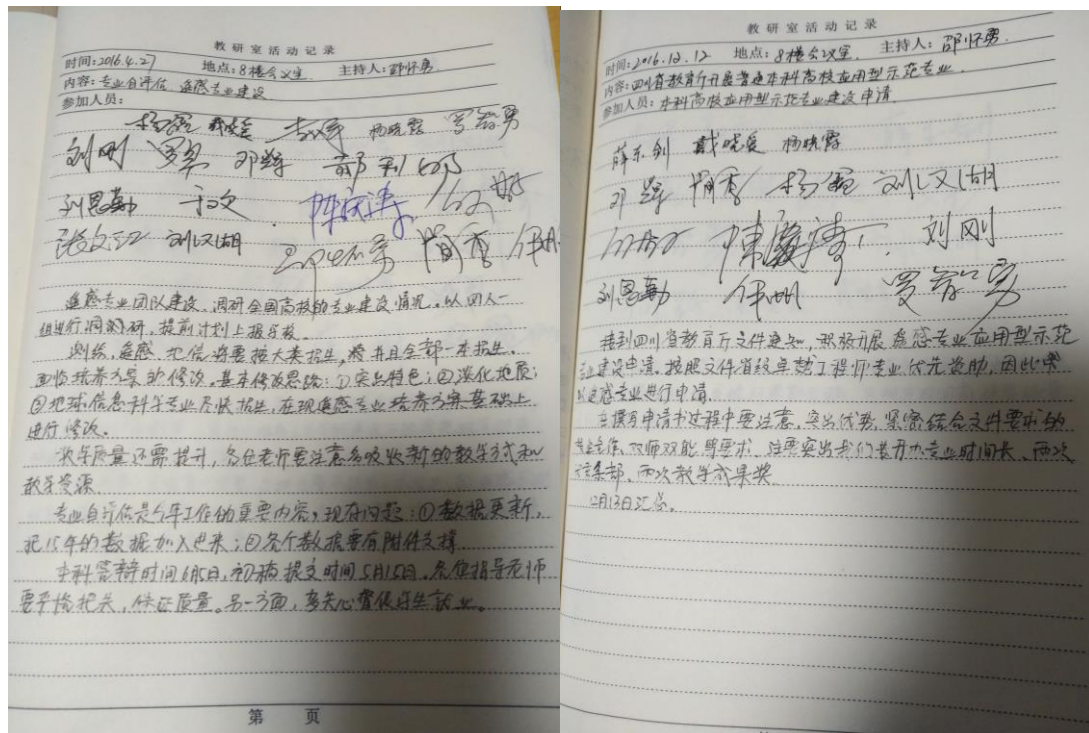 教研室活动记录
时间:2016.4.27 地点:8楼会议室 主持人:邵怀勇
内容:专业自评估 遥感专业建设
参加人员:
杨霞 戴晓爱 杨晓霞 罗智勇
刘刚 邓辉
刘恩勤 于欢 陈庆涛
刘汉湖 邵怀勇 简季
遥感专业团队建设、调研全国高校的专业建设情况。以四人一
组进行调研,提前计划上报学校
测绘,遥感,地信将要按大类招生,并且全部一本招生。
面临培养方案的修改,基本修改思路:①突出特色;②深化地质;
③地球信息科学专业尽快招生,在现遥感专业培养方案基础上
进行修改。
教学质量还需提升,各位老师要注意多吸收新的教学方式和
教学资源
专业自评估是今年工作的重要内容,现存问题:①数据更新,
把15年的数据加入进来;②各个数据要有附件支撑
本科答辩时间6月5日,初稿提交时间5月15日,各位指导老师
要严格把关,保证质量。另一方面,多关心督促学生就业。
第 页
教研室活动记录
时间:2016.12.12 地点:8楼会议室 主持人:邵怀勇
内容:四川省教育厅开展普通本科高校应用型示范专业
参加人员:本科高校应用型示范专业建设申请
薛东剑 戴晓爱 杨晓霞
邓辉 简季 杨霞 刘汉湖
陈庆涛 刘刚
刘恩勤 罗智勇
接到四川省教育厅文件通知,积极开展遥感专业应用型示范
专业建设申请,按照文件省级卓越工程师专业优先资助,因此
以遥感专业进行申请.
在撰写申请书过程中要注意,突出优势,紧密结合文件要求的
校企合作、双师双能等要求,注要突出我们是开办专业时间长、两次
两次教学成果奖
12月13日汇总。